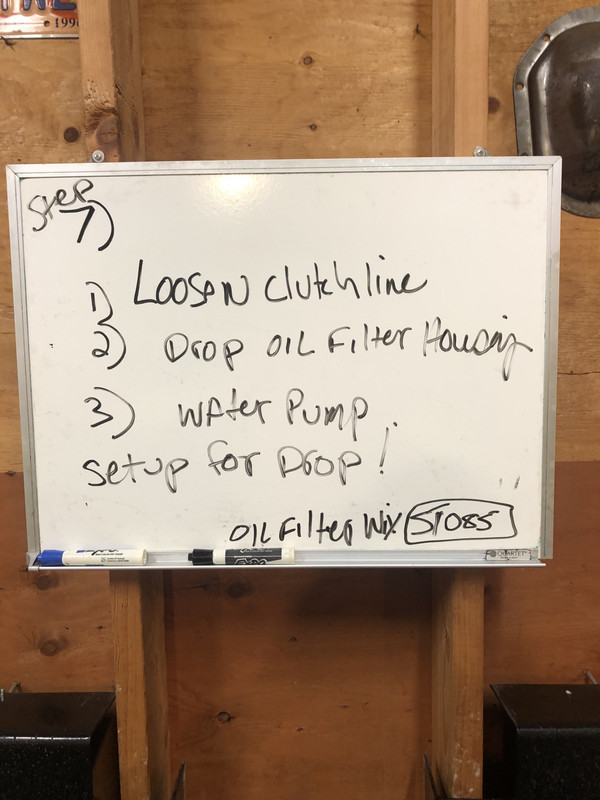 1991
Step
7)
1) Loosen Clutch line
2) Drop OIL Filter Housing
3) Water Pump
setup for Drop!
OIL Filter Wix 51085
QUARTET